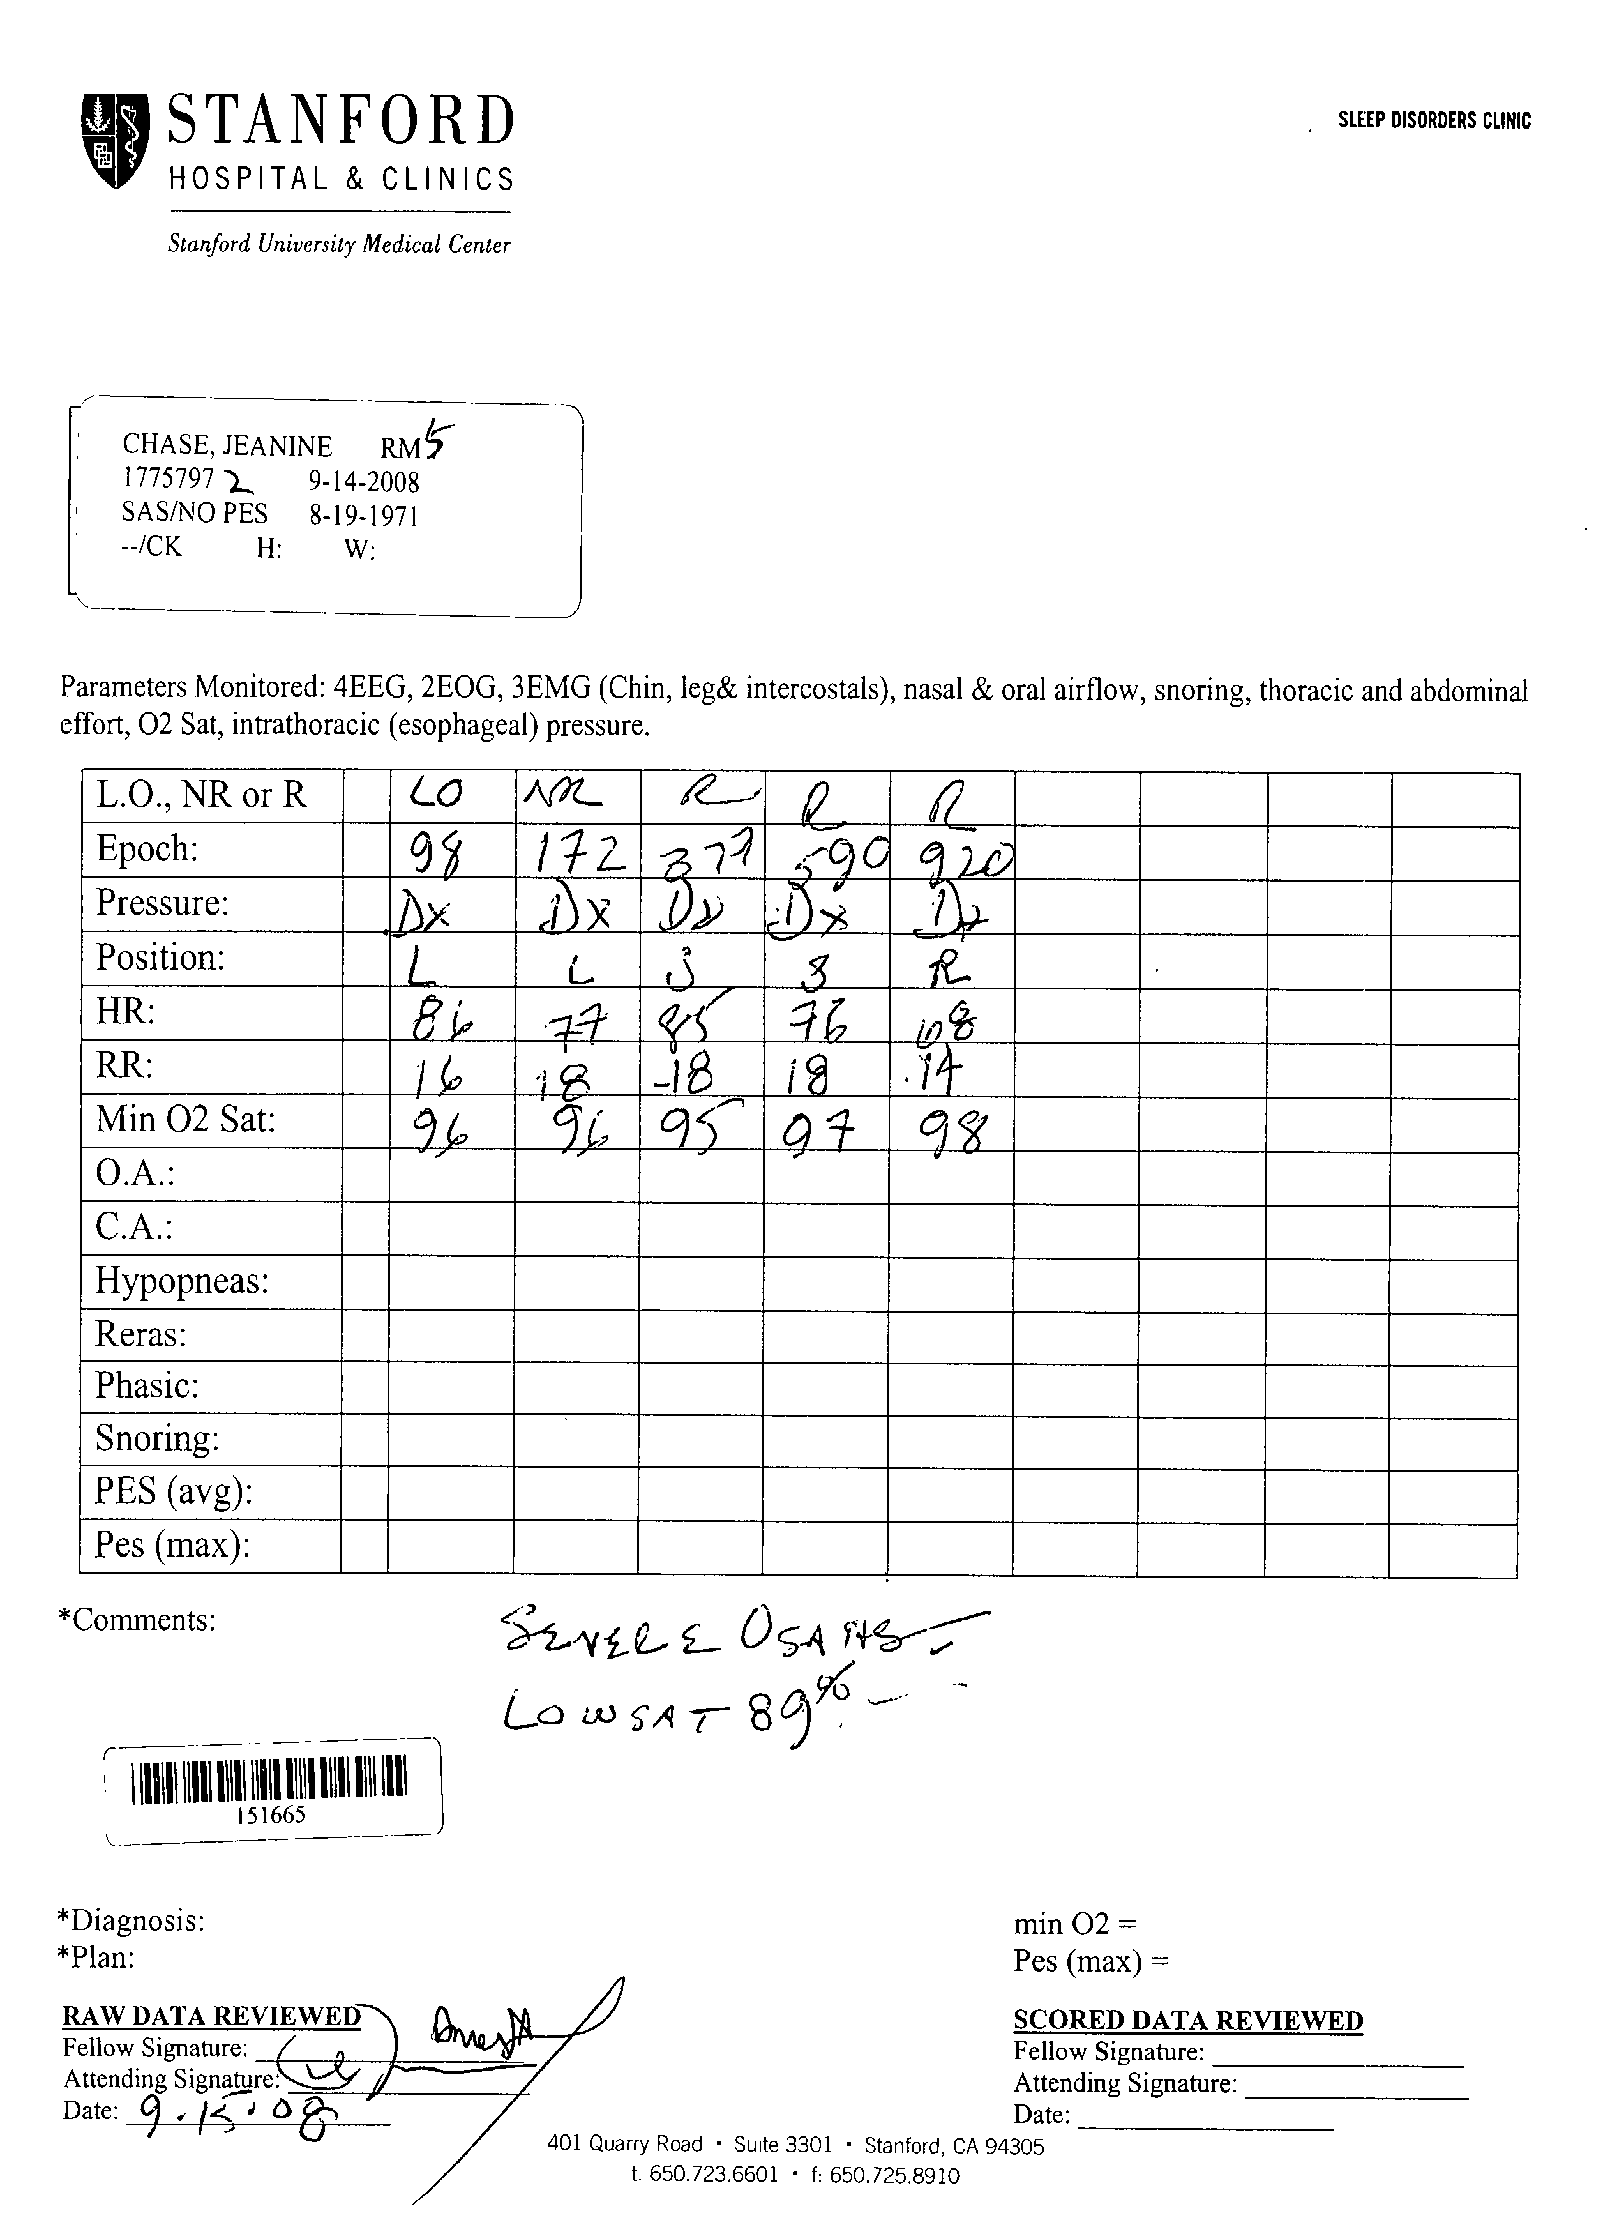 STANFORD
HOSPITAL & CLINICS
Stanford University Medical Center
SLEEP DISORDERS CLINIC
CHASE, JEANINE RM 5
1775797 2 9-14-2008
SAS/NO PES 8-19-1971
--/CK H: W:
Parameters Monitored: 4EEG, 2EOG, 3EMG (Chin, leg& intercostals), nasal & oral airflow, snoring, thoracic and abdominal
effort, O2 Sat, intrathoracic (esophageal) pressure.
L.O., NR or R LO NR R R R
Epoch: 98 172 377 590 920
Pressure: Dx Dx Dx Dx Dx
Position: L L S S R
HR: 86 77 85 76 108
RR: 16 18 18 18 14
Min O2 Sat: 96 96 95 97 98
O.A.:
C.A.:
Hypopneas:
Reras:
Phasic:
Snoring:
PES (avg):
Pes (max):
*Comments: SEVERE OSAHS -
LOW SAT 89% -
151665
*Diagnosis:
*Plan:
min O2 =
Pes (max) =
RAW DATA REVIEWED
Fellow Signature:
Attending Signature:
Date: 9.15.08
SCORED DATA REVIEWED
Fellow Signature:
Attending Signature:
Date:
401 Quarry Road • Suite 3301 • Stanford, CA 94305
t. 650.723.6601 • f: 650.725.8910